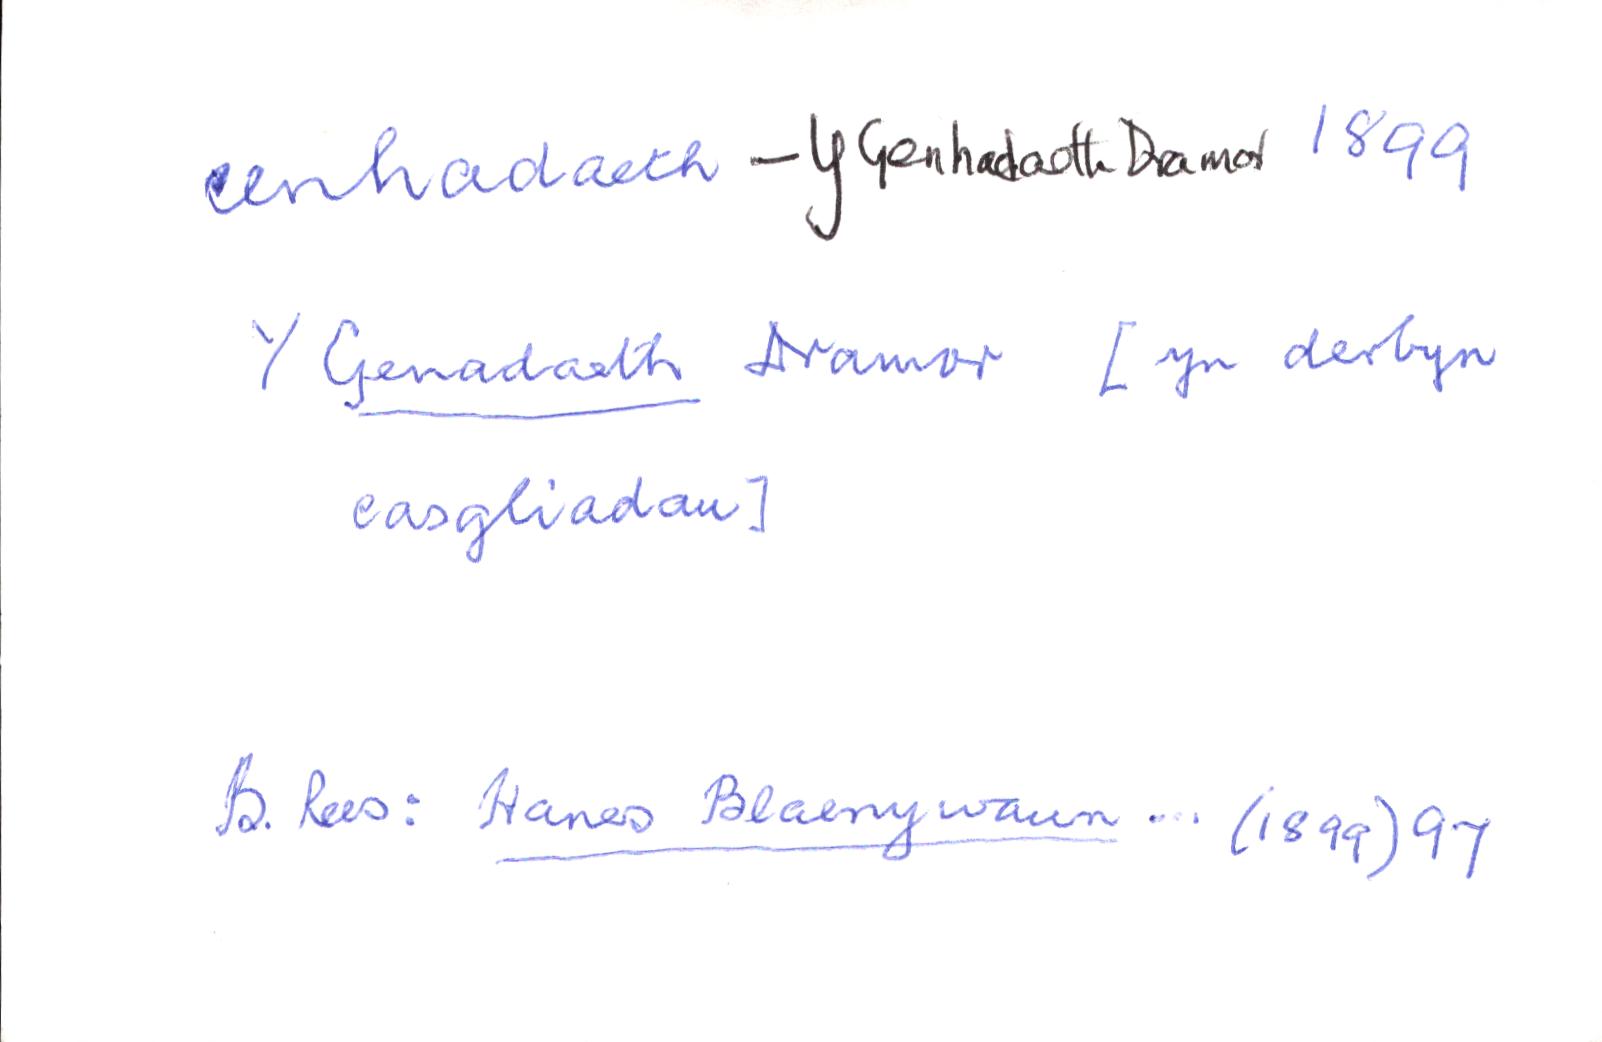 cenhadaeth – Y Genhadaeth Dramor 1899
Y Genadaeth Dramor [yn derbyn
casgliadau]
B. Rees: Hanes Blaenywaun ... (1899) 97